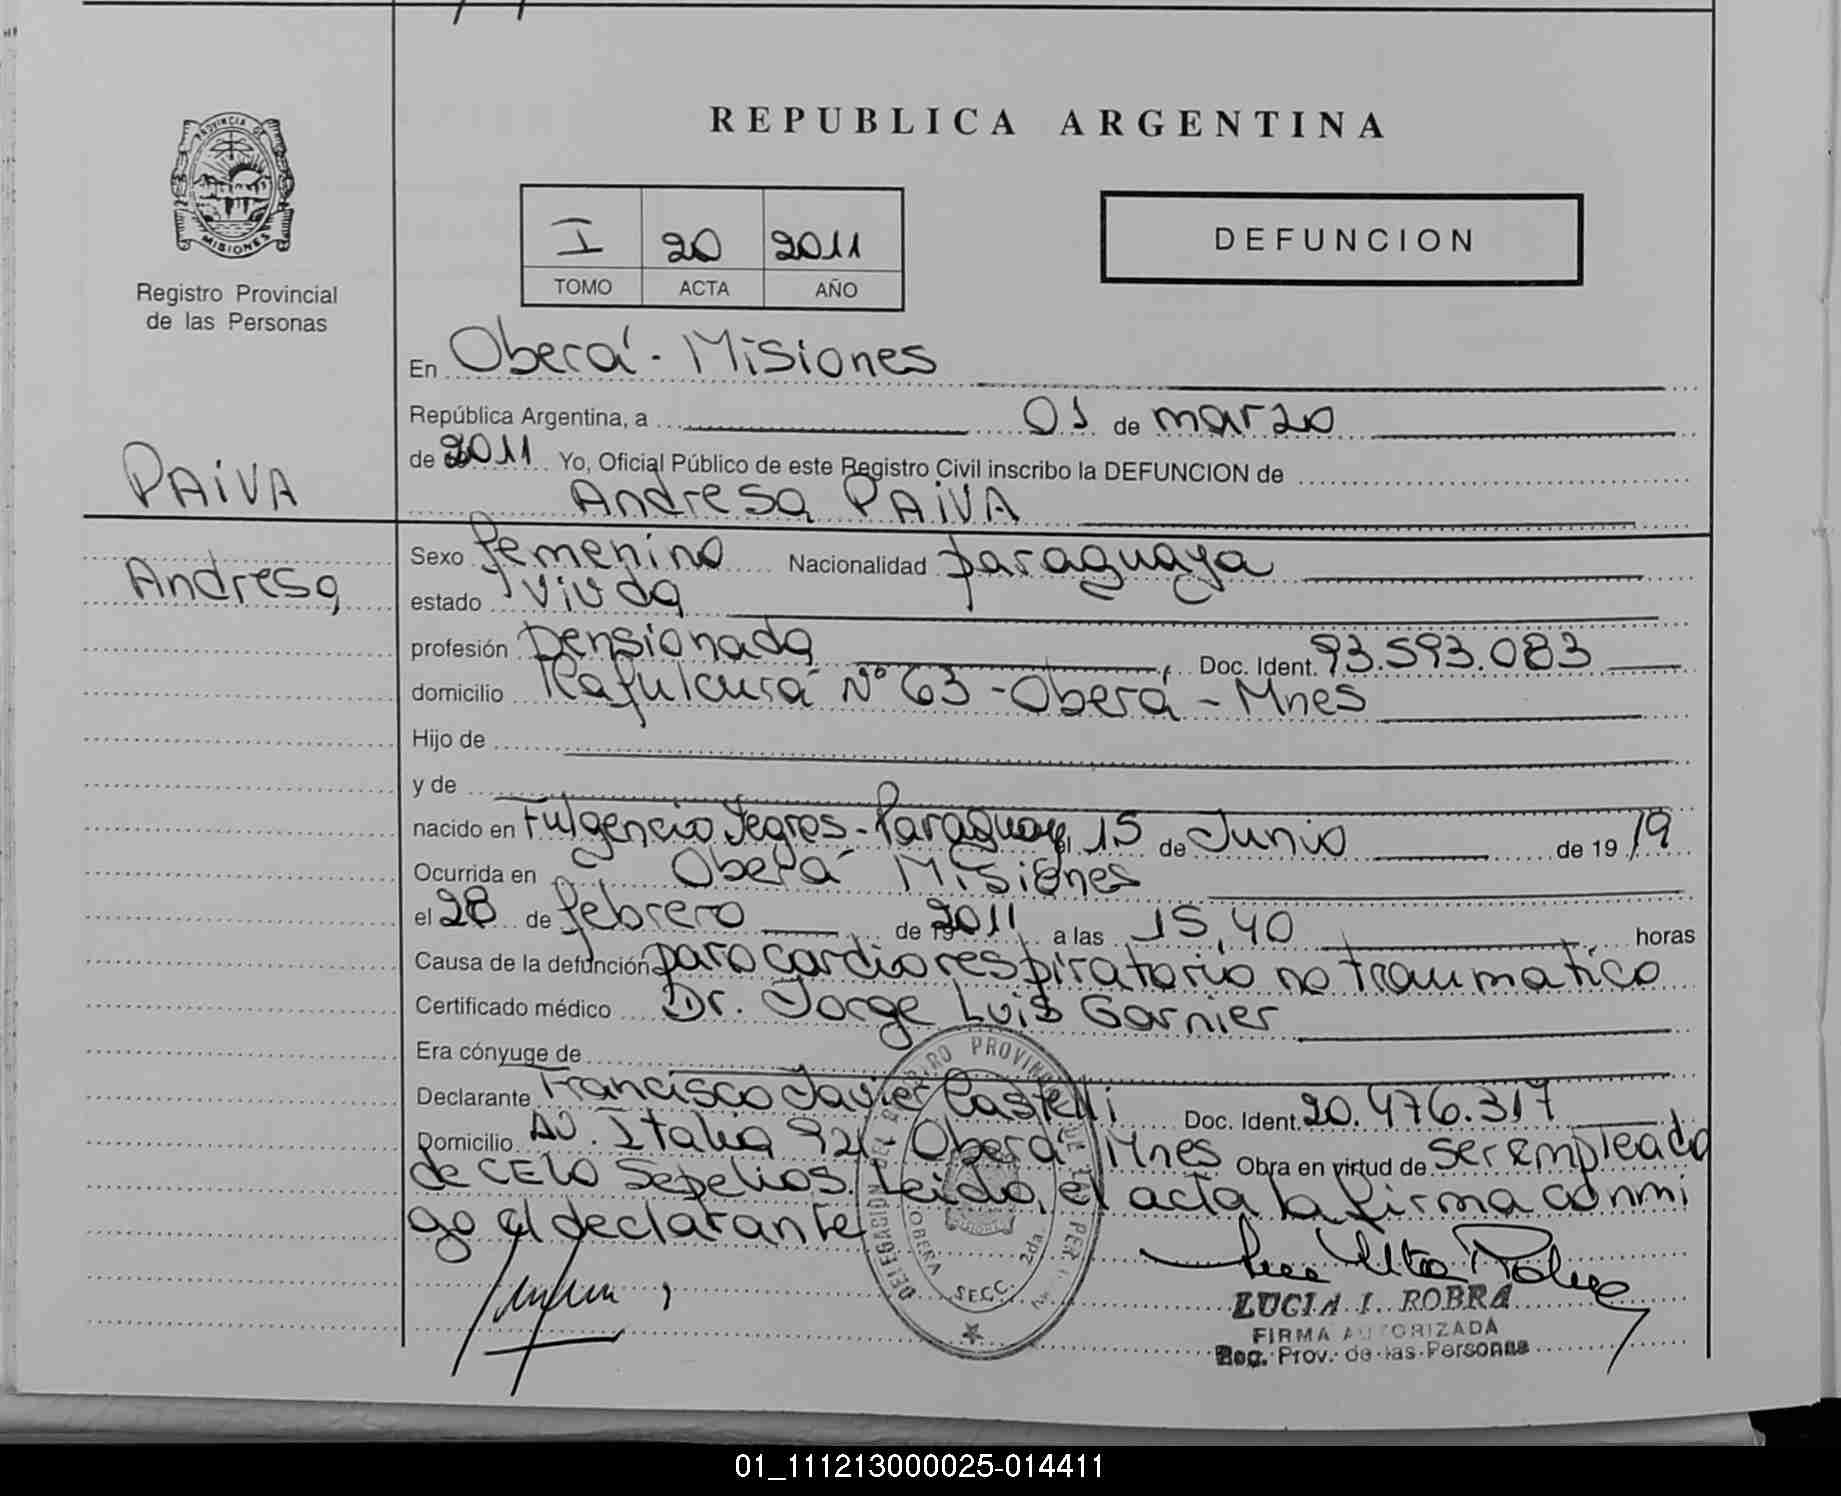 REPUBLICA ARGENTINA
PROVINCIA DE
MISIONES
Registro Provincial
de las Personas
I 20 2011
TOMO ACTA AÑO
DEFUNCION
En Oberá - Misiones
República Argentina, a 01 de marzo
de 2011 Yo, Oficial Público de este Registro Civil inscribo la DEFUNCION de
PAIVA
Andresa PAIVA
Andresa
Sexo femenino Nacionalidad paraguaya
estado viuda
profesión Pensionada Doc. Ident. 93.593.083
domicilio Kafulcurá N° 63 - Oberá - Mnes
Hijo de
y de
nacido en Fulgencio Yegros - Paraguay el 15 de Junio de 19 19
Ocurrida en Oberá Misiones
el 28 de febrero de 2011 a las 15,40 horas
Causa de la defunción paro cardiorespiratorio no traumatico
Certificado médico Dr. Jorge Luis Garnier
Era cónyuge de
Declarante Francisco Javier Castelli Doc. Ident. 20.476.317
Domicilio Av. Italia 921 - Oberá Mnes Obra en virtud de ser empleado
de CELO Sepelios. Leido, el acta la firma conmi
go el declarante
DELEGACIÓN DEL REGISTRO PROVINCIAL DE LAS PER
OBERA SECC. 2da.
LUCIA I. ROBRA
FIRMA AUTORIZADA
Reg. Prov. de las Personas
01_111213000025-014411